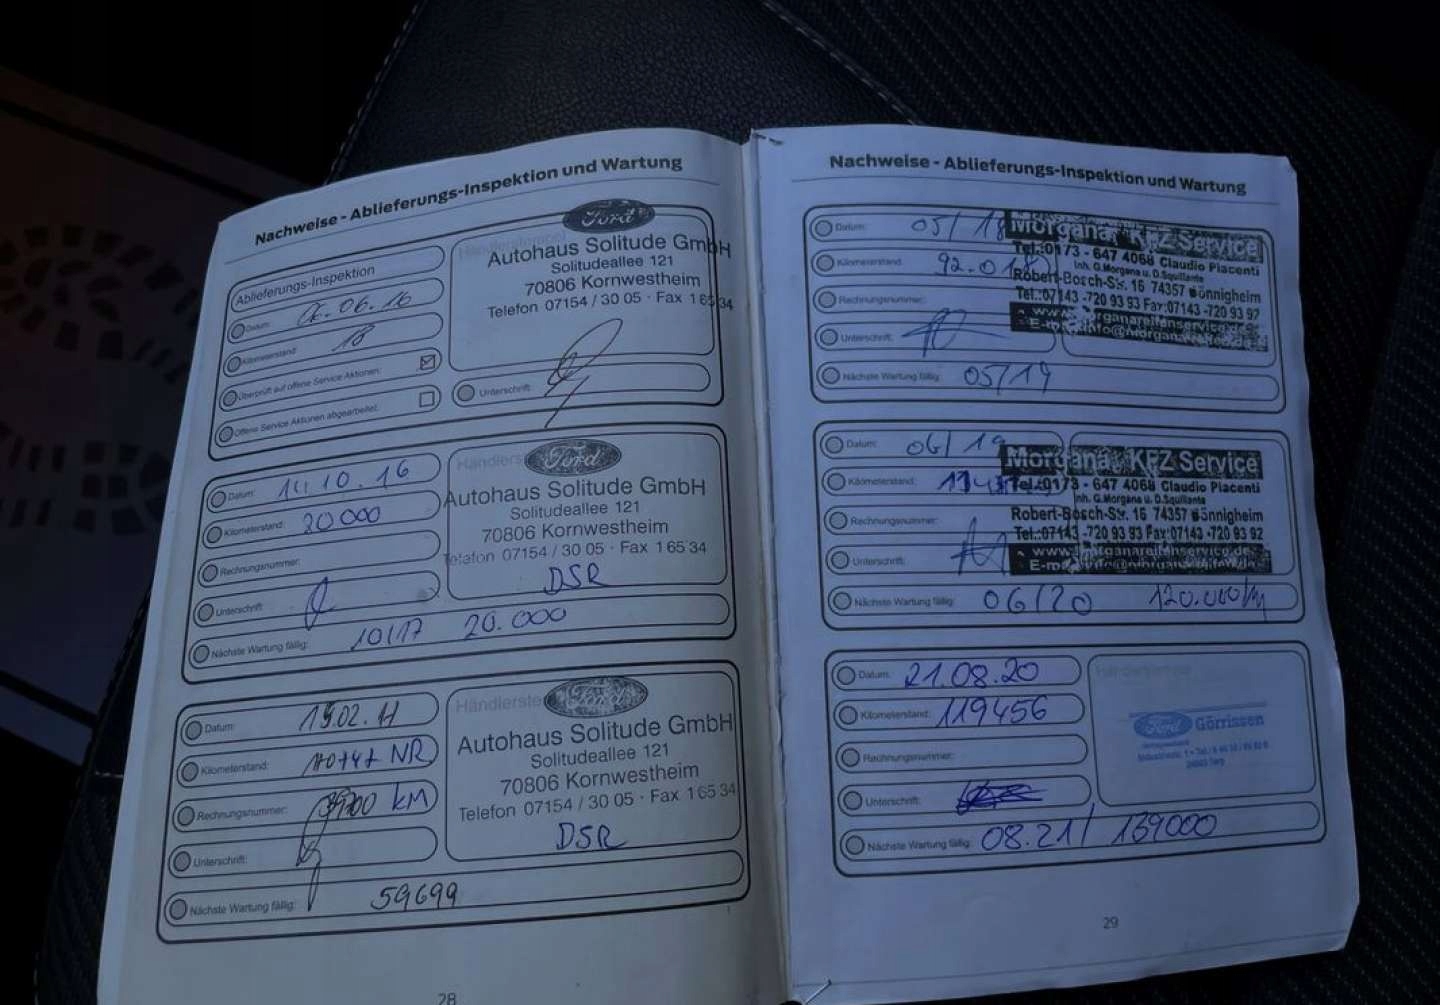 Nachweise - Ablieferungs-Inspektion und Wartung
Ablieferungs-Inspektion
Datum: 06.16
Kilometerstand: 18
Überprüft auf offene Service Aktionen:
Offene Service Aktionen abgearbeitet:
Ford
Autohaus Solitude GmbH
Solitudeallee 121
70806 Kornwestheim
Telefon 07154 / 30 05 · Fax 1 65 34
Unterschrift:
Datum: 14.10.16
Kilometerstand: 20000
Rechnungsnummer:
Unterschrift:
Nächste Wartung fällig: 10/17 20.000
Ford
Autohaus Solitude GmbH
Solitudeallee 121
70806 Kornwestheim
Telefon 07154 / 30 05 · Fax 1 65 34
DSR
Datum: 15.02.
Kilometerstand: NR
Rechnungsnummer: KM
Unterschrift:
Nächste Wartung fällig: 59699
Ford
Autohaus Solitude GmbH
Solitudeallee 121
70806 Kornwestheim
Telefon 07154 / 30 05 · Fax 1 65 34
DSR
28
Nachweise - Ablieferungs-Inspektion und Wartung
Datum: 05/18
Kilometerstand: 92.018
Rechnungsnummer:
Unterschrift:
Nächste Wartung fällig: 05/19
Morgana KFZ Service
Tel.:0173 - 647 4068 Claudio Piacenti
Inh. G.Morgana u. D.Squillante
Robert-Bosch-Str. 16 74357 Bönnigheim
Tel.:07143 -720 93 93 Fax:07143 -720 93 92
Datum: 06/19
Kilometerstand:
Rechnungsnummer:
Unterschrift:
Nächste Wartung fällig: 06/20 120.000 km
Morgana KFZ Service
Tel.:0173 - 647 4068 Claudio Piacenti
Inh. G.Morgana u. D.Squillante
Robert-Bosch-Str. 16 74357 Bönnigheim
Tel.:07143 -720 93 93 Fax:07143 -720 93 92
Datum: 21.08.20
Kilometerstand: 119456
Rechnungsnummer:
Unterschrift:
Nächste Wartung fällig: 08.21 / 139000
Händlerstempel
Ford Görrissen
29